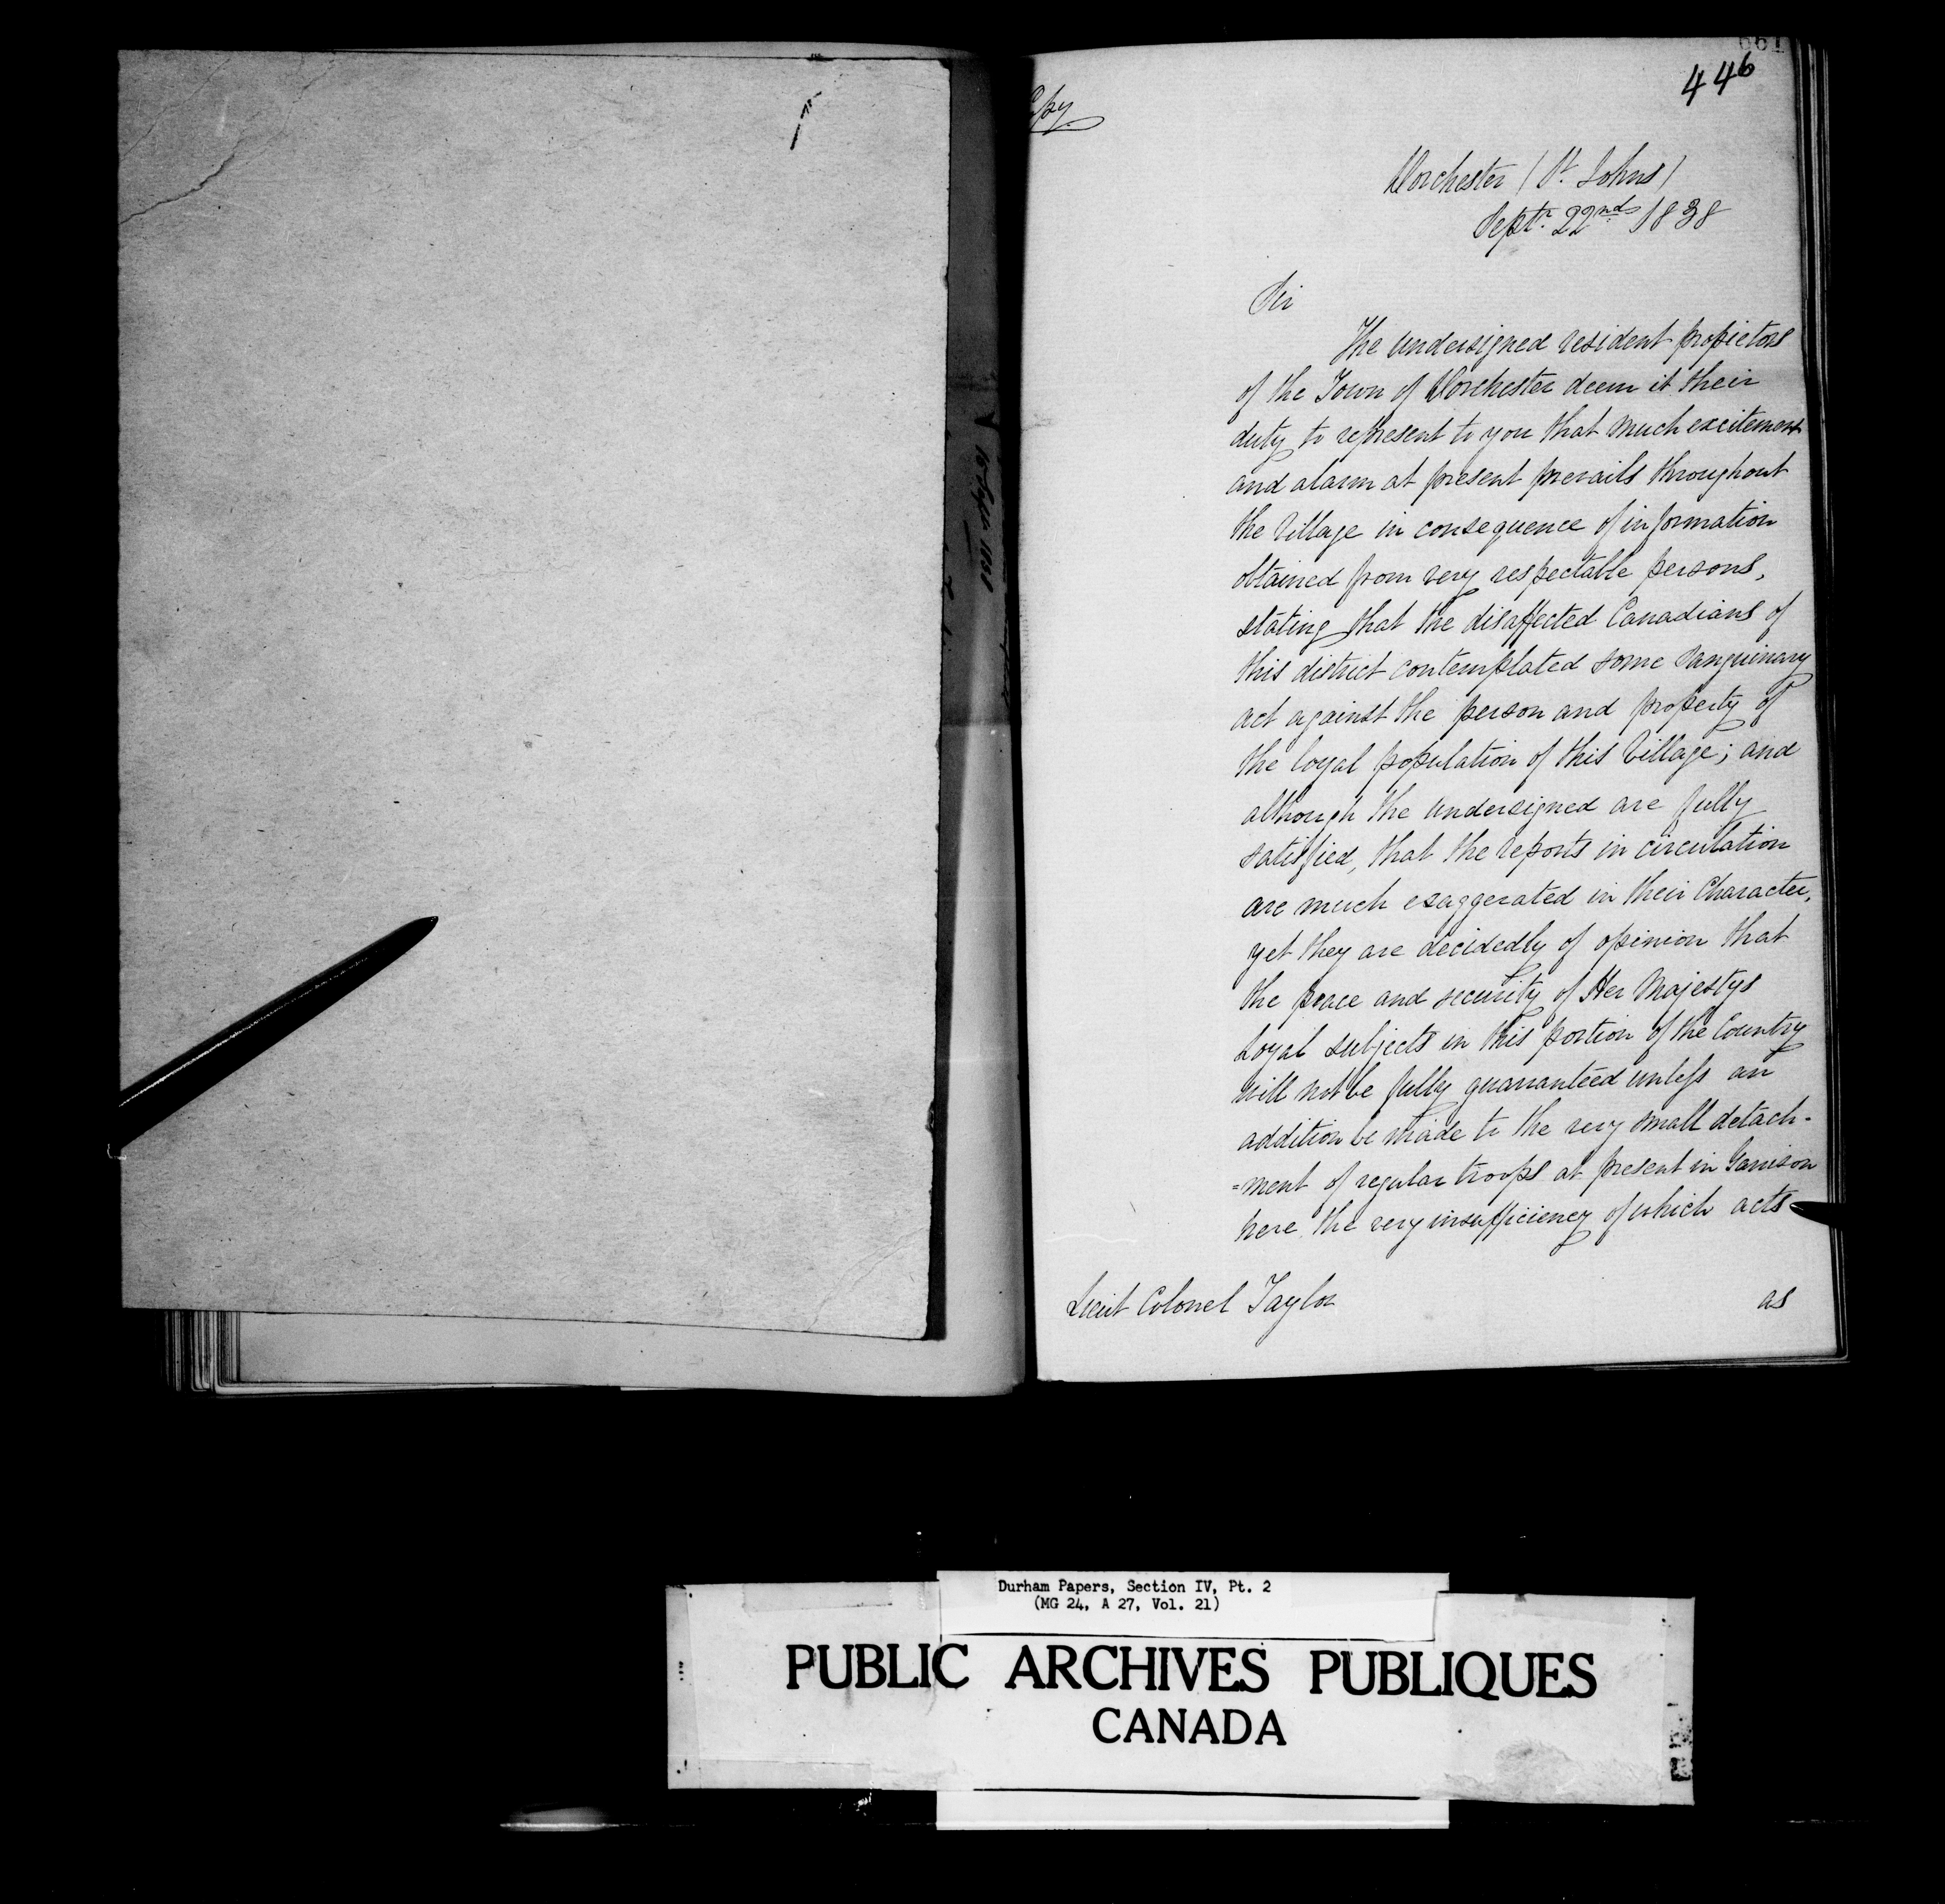 446
Copy
Dorchester (St. Johns)
Septr. 22nd 1838
Sir
The undersigned resident propietors
of the Town of Dorchester deem it their
duty to represent to you that much excitement
and alarm at present prevails throughout
the Village in consequence of information
obtained from very respectable persons,
stating that the disaffected Canadians of
this district contemplated some sanguinary
act against the person and property of
the loyal population of this Village; and
although the undersigned are fully
satisfied, that the reports in circulation
are much exaggerated in their Character,
yet they are decidedly of opinion that
the peace and security of Her Majestys
Loyal subjects in this portion of the Country
will not be fully guaranteed unless an
addition be made to the very small detach-
=ment of regular troops at present in Garrison
here the very insufficiency of which acts
Lieut Colonel Taylor
as
Durham Papers, Section IV, Pt. 2
(MG 24, A 27, Vol. 21)
PUBLIC ARCHIVES PUBLIQUES
CANADA